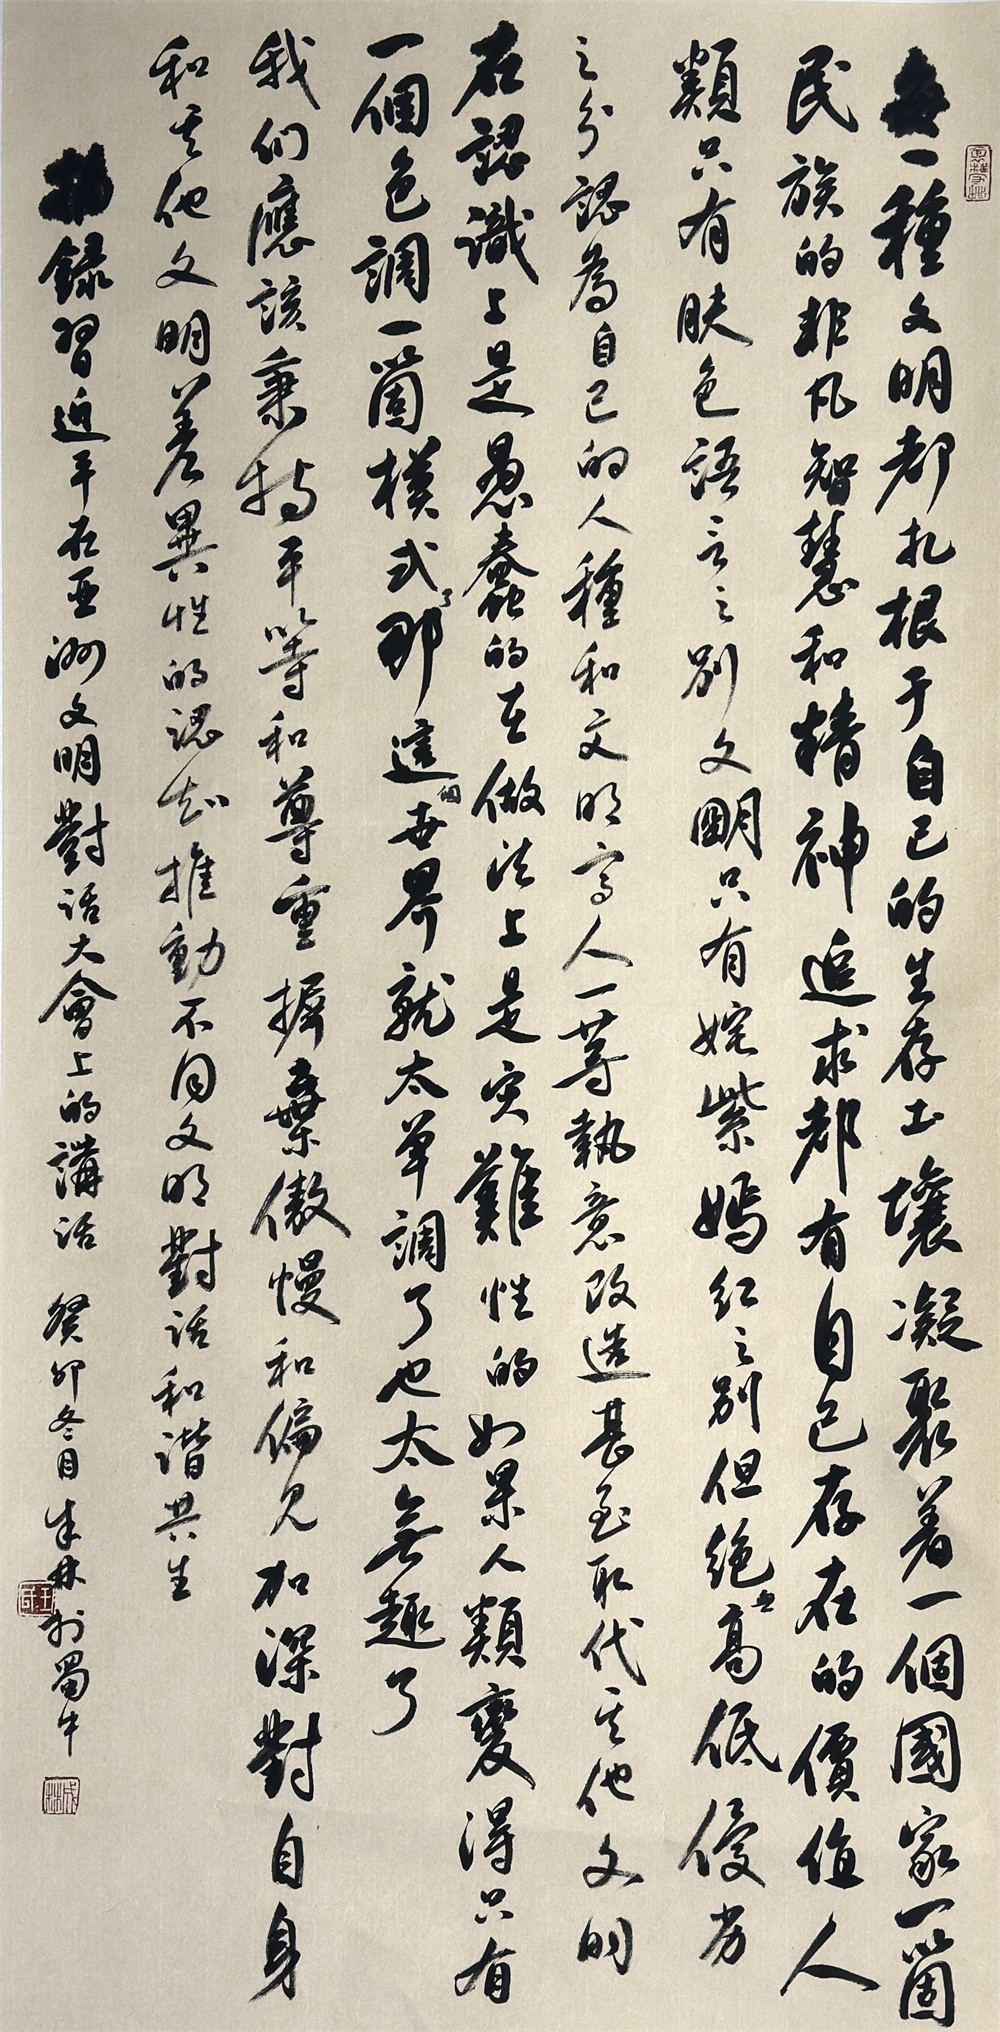 每一種文明都扎根于自己的生存土壤凝聚着一個國家一箇
民族的非凡智慧和精神追求都有自己存在的價值人
類只有膚色語言之別文明只有姹紫嫣紅之別但絕无高低優劣
之分認為自己的人種和文明高人一等執意改造甚至取代其他文明
在認識上是愚蠢的在做法上是災難性的如果人類變得只有
一個色調一箇模式了那這個世界就太单調了也太無趣了
我们應該秉持平等和尊重摒棄傲慢和偏見加深對自身
和其他文明差異性的認知推動不同文明對話和谐共生
摘録習近平在亚洲文明對話大會上的講話 癸卯冬月成林於蜀中
成林